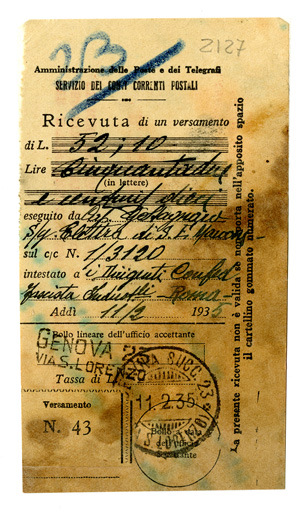 2127
23
Amministrazione delle Poste e dei Telegrafi
SERVIZIO DEI CONTI CORRENTI POSTALI
Ricevuta di un versamento
di L. 52,10
Lire Cinquantadue
(in lettere)
e centesimi dieci
eseguito da
Elettra di
sul c/c N. 1/3120
intestato a
Roma
Addì 11/2 1935
Bollo lineare dell'ufficio accettante
GENOVA
VIA S. LORENZO
Tassa di L.
SUCC. 23
11.2.35
Versamento
N. 43
Bollo
dell'ufficio
accettante
La presente ricevuta non è valida se non porta nell'apposito spazio
il cartellino gommato numerato.